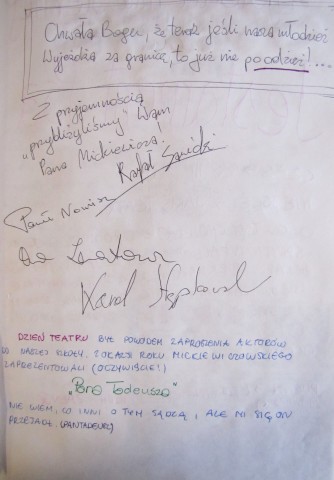 Chwała Bogu, że teraz jeśli nasza młodzież
wyjeżdża za granicę, to już nie po odzież!...
Z przyjemnością
„przybliżyliśmy" Wam
Pana Mickiewicza!
Rafał Sawicki
Paweł
Karol
DZIEŃ TEATRU BYŁ POWODEM ZAPROSZENIA AKTORÓW
DO NASZEJ SZKOŁY, Z OKAZJI ROKU MICKIEWICZOWSKIEGO
ZAPREZENTOWALI (OCZYWIŚCIE!)
„Pana Tadeusza"
NIE WIEM, CO INNI O TYM SĄDZĄ, ALE MI SIĘ ON
PRZEJADŁ. (PANTADEUSZ)